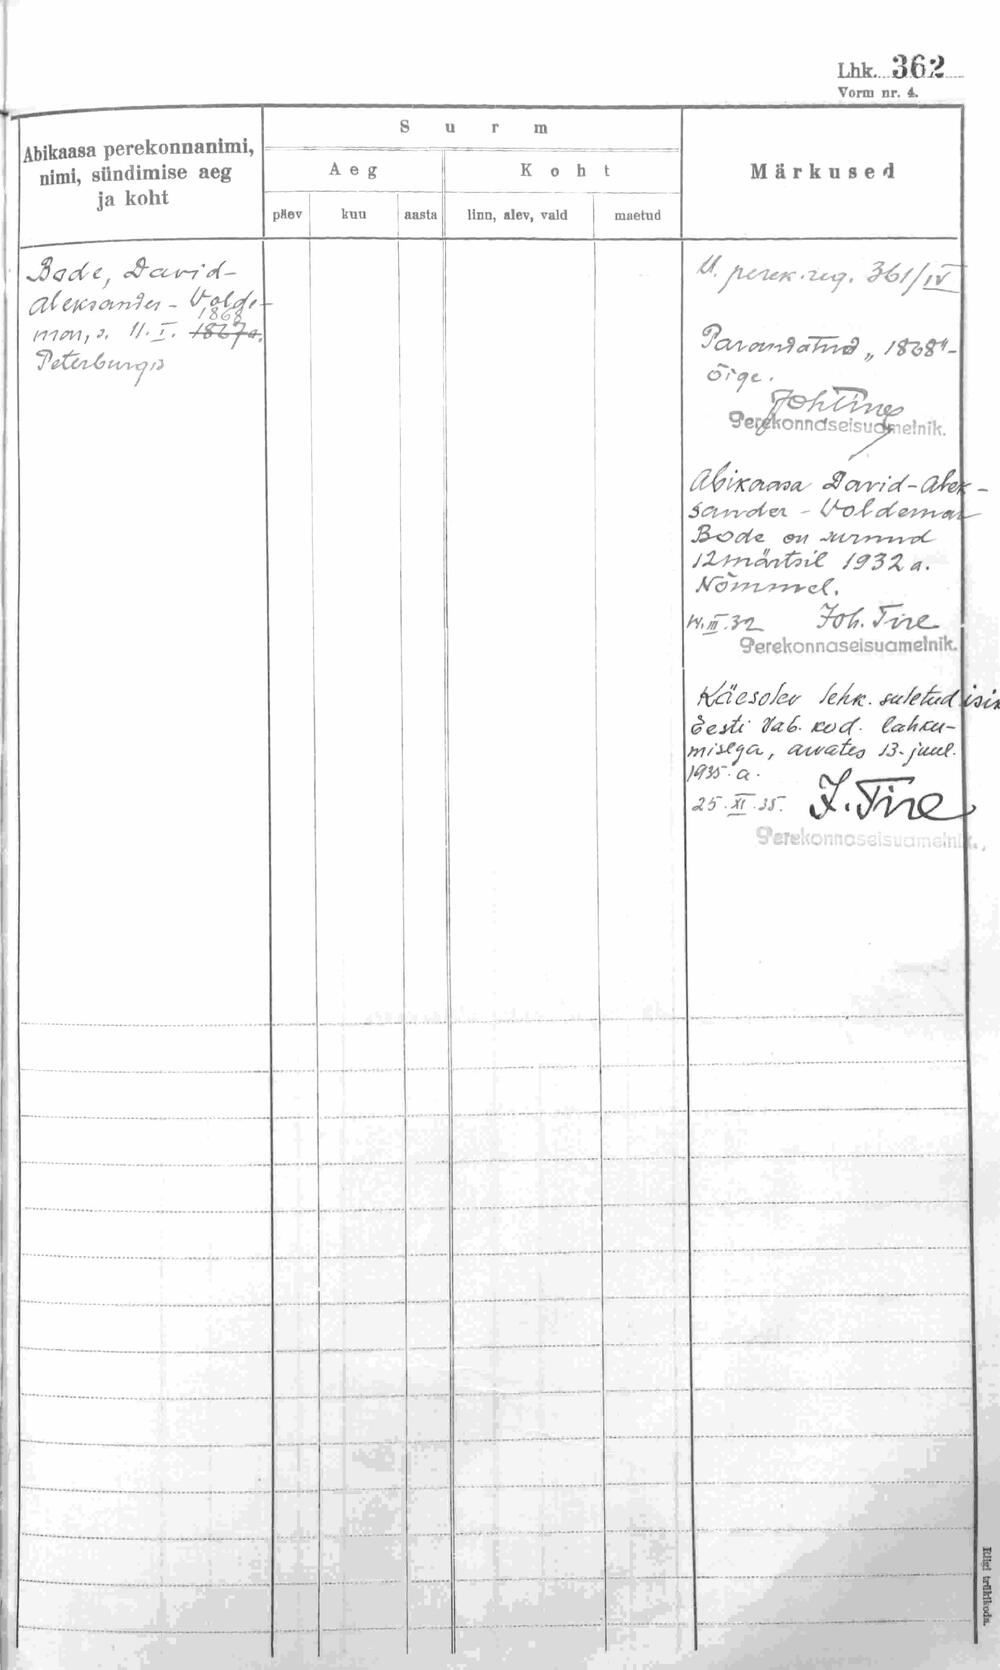 Lhk. 362
Vorm nr. 4.
Abikaasa perekonnanimi,
nimi, sündimise aeg
ja koht
Surm
Aeg
Koht
päev
kuu
aasta
linn, alev, vald
maetud
Märkused
Bode, David-
Aleksander-Volde-
1868
mar, s. 11. I. 1867a.
Peterburgis
perek. reg. 361/IV
Parandatud „1868"-
õige.
Perekonnaseisuametnik.
Abikaasa David-Alek-
sander-Voldemar
Bode on surnud
12 märtsil 1932 a.
Nõmmel.
III.32 Joh. Tire
Perekonnaseisuametnik.
Käesolev lehk. suletud isik
Eesti Vab. kod. lahku-
misega, arvates 13. juul.
1935. a.
25. XI. 35. J. Tire
Perekonnaseisuametnik.
Riigi trükikoda.